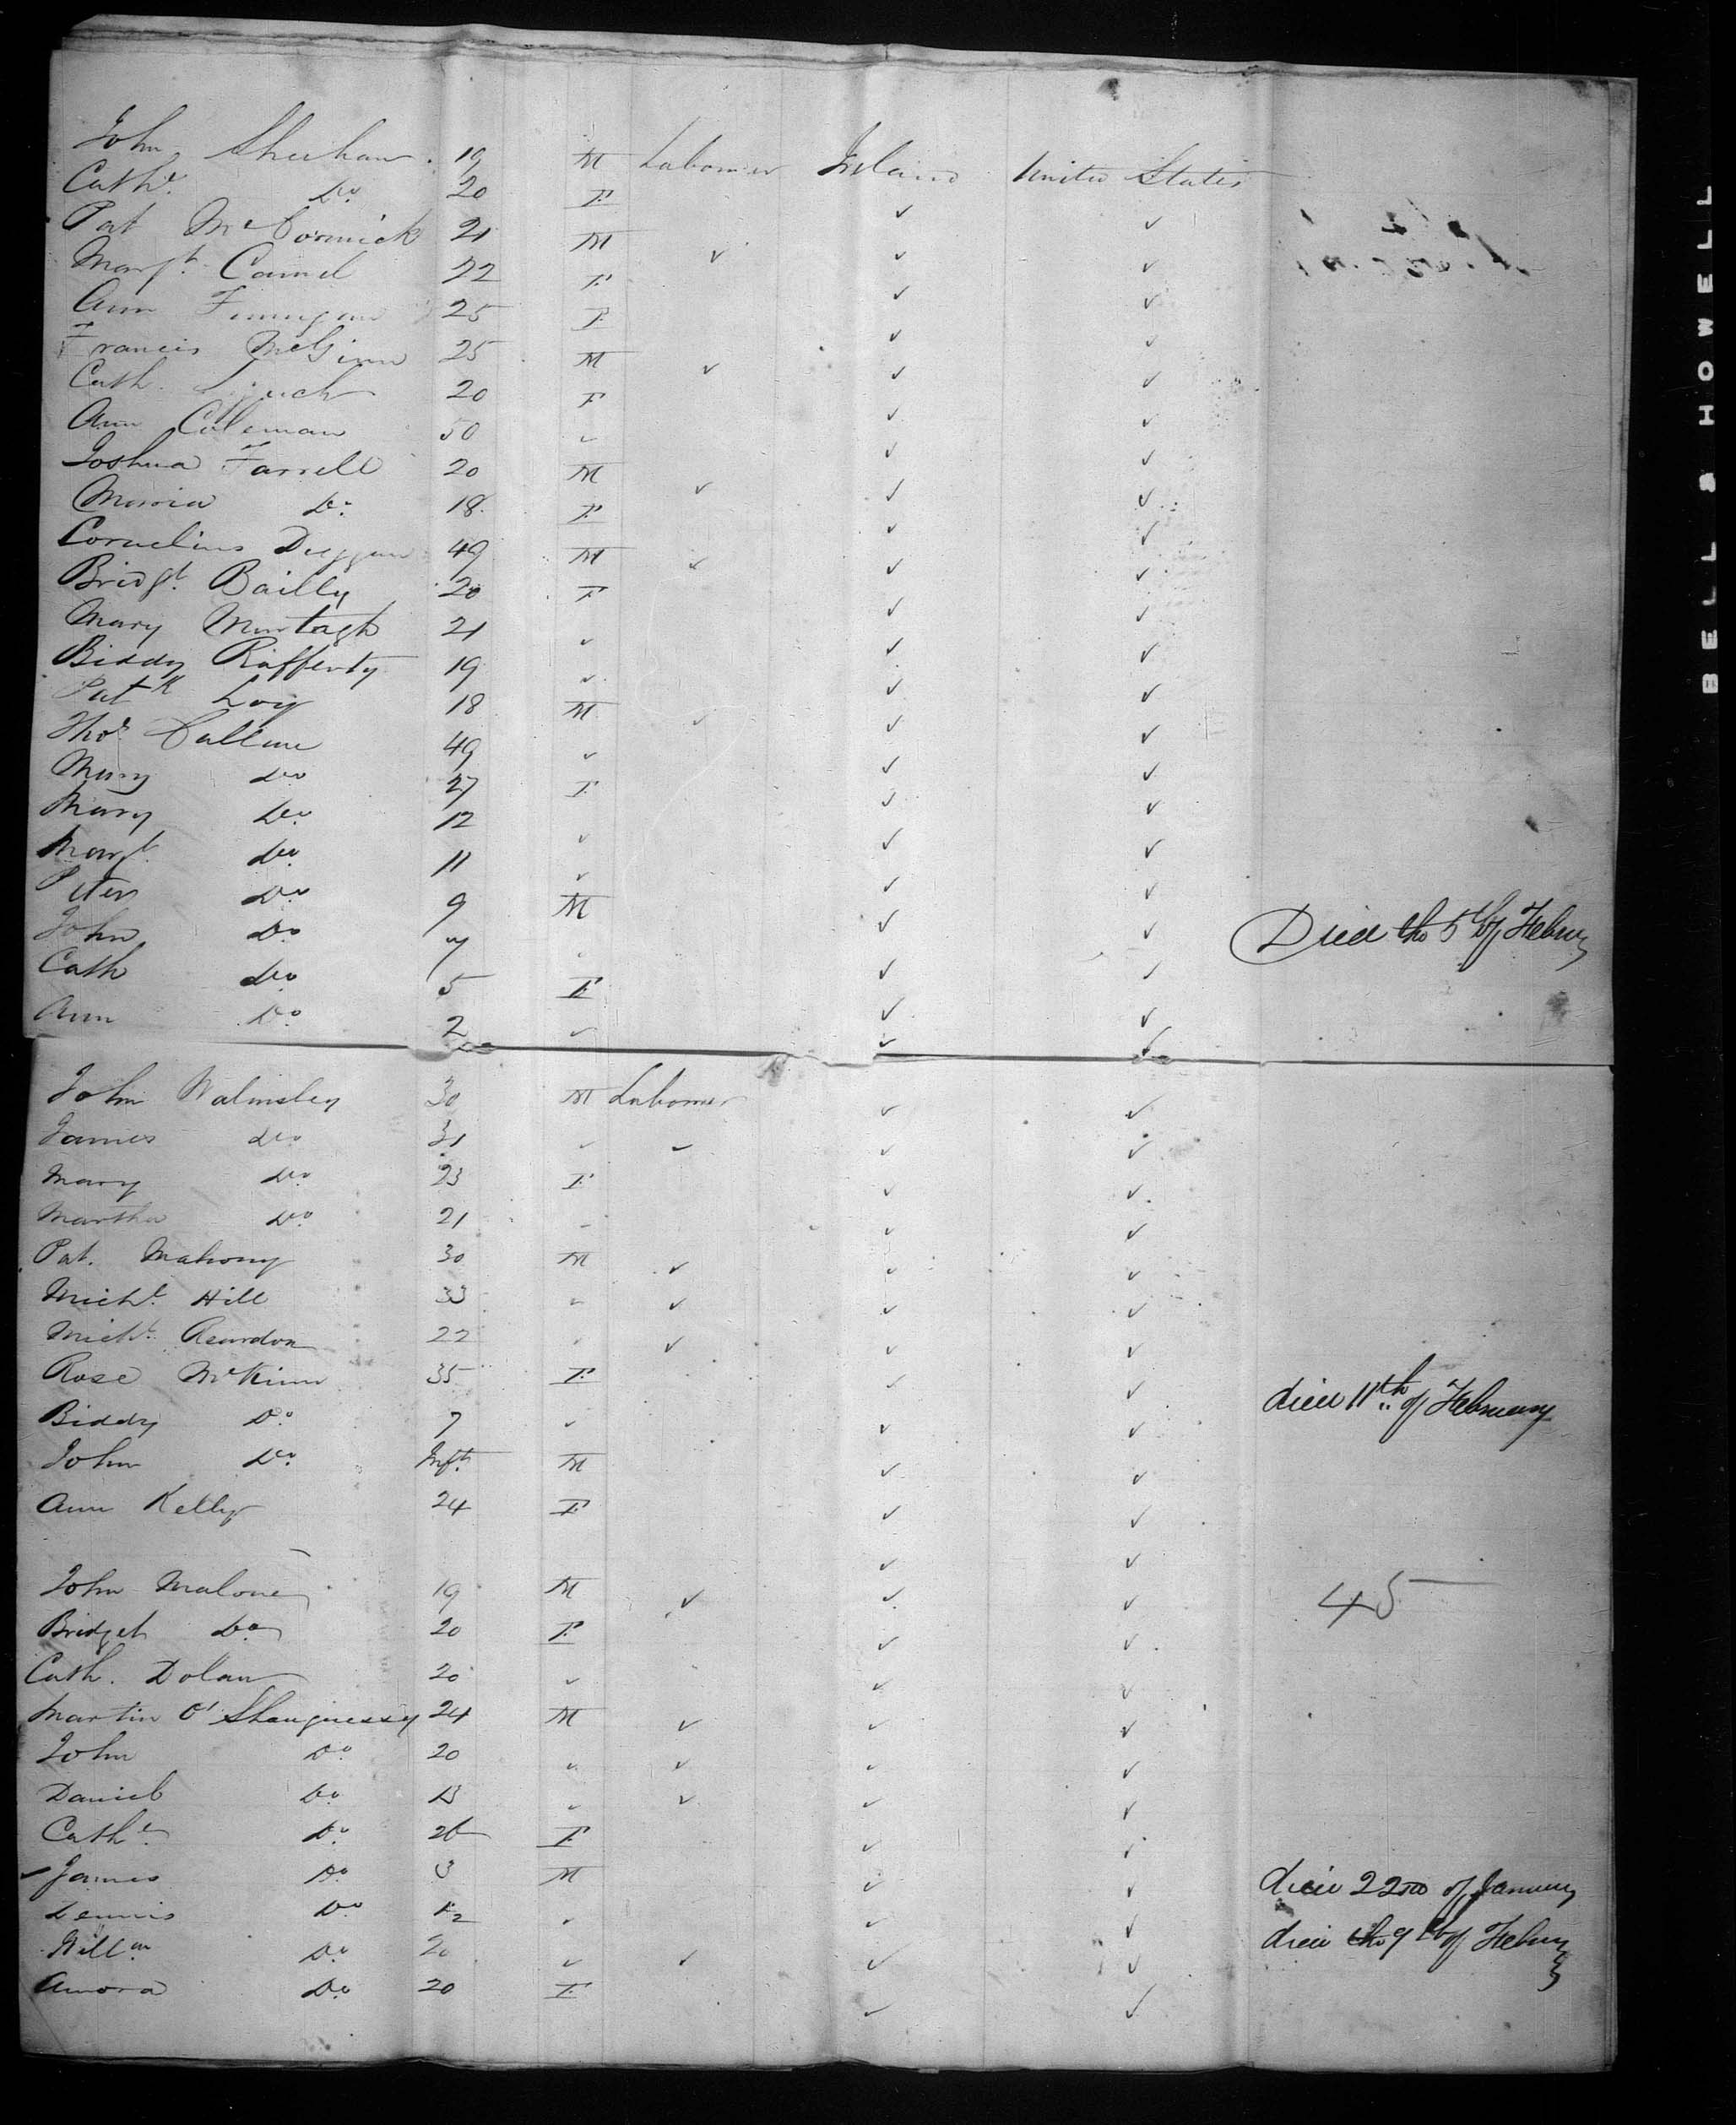 John Sheehan 19 M Labourer Ireland United States
Cathe. Do. 20 F ✓ ✓
Pat McCormick 21 M ✓ ✓ ✓
Margt. Camel 22 F ✓ ✓
Ann Finnigan 25 F ✓ ✓
Francis McGinn 25 M ✓ ✓ ✓
Cath. Lynch 20 F ✓ ✓
Ann Coleman 50 ✓ ✓ ✓
Joshua Farrell 20 M ✓ ✓ ✓
Maria Do. 18 F ✓ ✓
Cornelius Duggan 49 M ✓ ✓ ✓
Bridgt. Bailly 20 F ✓ ✓
Mary Murtagh 21 ✓ ✓ ✓
Biddy Rafferty 19 ✓ ✓ ✓
Patk Loy 18 M ✓ ✓ ✓
Thos. Callan 49 ✓ ✓ ✓
Mary Do 27 F ✓ ✓
Mary Do. 12 ✓ ✓ ✓
Margt. Do. 11 ✓ ✓ ✓
Peter Do 9 M ✓ ✓ Died the 5th of Febury
John Do. 7 ✓ ✓
Cath Do. 5 F ✓ ✓
Ann Do. 2 ✓ ✓ ✓
John Walmsley 30 M Labourer ✓ ✓
James Do 31 ✓ ✓ ✓ ✓
Mary Do. 23 F ✓ ✓
Martha Do. 21 ✓ ✓ ✓
Pat. Mahony 30 M ✓ ✓ ✓
Michl. Hill 33 ✓ ✓ ✓ ✓
Michl. Reardon 22 ✓ ✓ ✓ ✓
Rose McKinn 35 F ✓ ✓ died 11th of February
Biddy Do. 7 ✓ ✓ ✓
John Do. Inft. M ✓ ✓
Ann Kelly 24 F ✓ ✓
John Maloney 19 M ✓ ✓ ✓ 45
Bridget Do 20 F ✓ ✓
Cath. Dolan 20 ✓ ✓ ✓
Martin O'Shaugnessy 24 M ✓ ✓ ✓
John Do. 20 ✓ ✓ ✓ ✓
Daniel Do. ✓ ✓ ✓ ✓
Cathe. Do. 26 F ✓ ✓
✓ James Do. 3 M ✓ ✓ died 22nd of January
Dennis Do ✓ ✓ ✓ died the 9th of Febury
Willm Do. 20 ✓ ✓ ✓ ✓
Anora Do. 20 F ✓ ✓
BELL & HOWELL